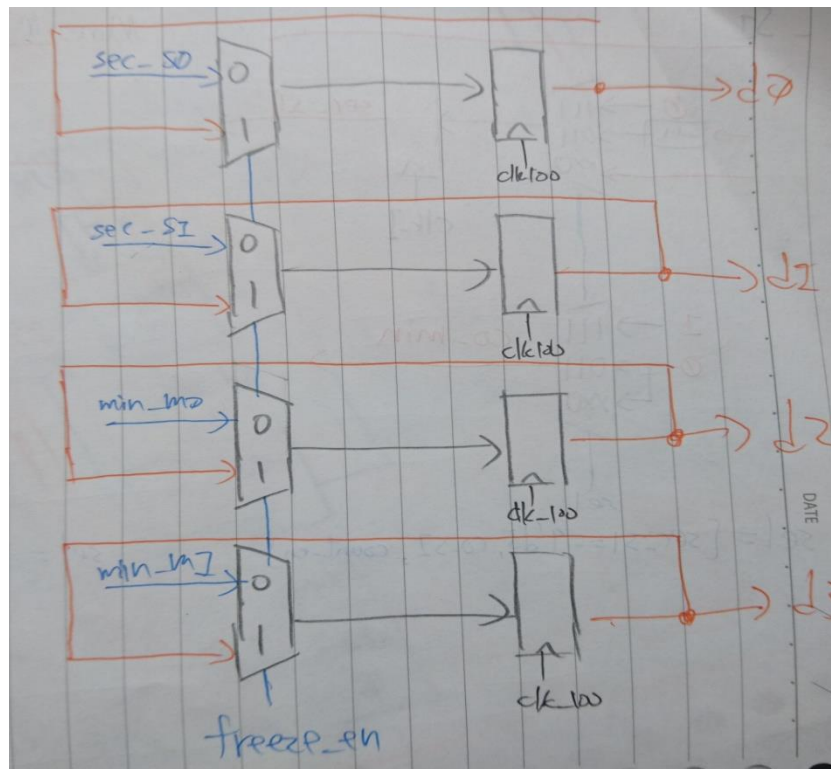 sec_S0
0
1
clk100
d0
sec_S1
0
1
clk100
d1
min_m0
0
1
clk_100
d2
min_m1
0
1
clk_100
freeze_en
DATE